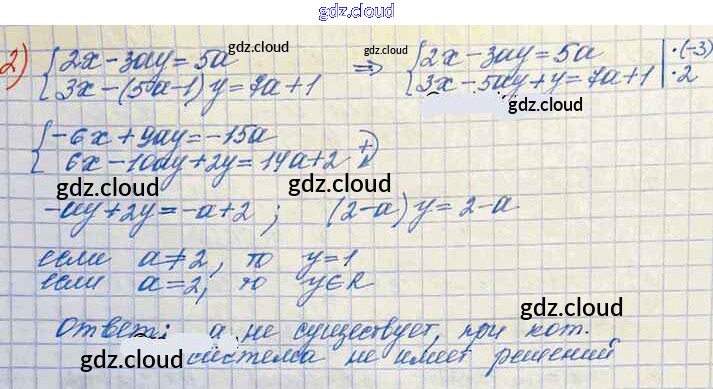 gdz.cloud
2) { 2x-3ay=5a gdz.cloud gdz.cloud => { 2x-3ay=5a | ·(-3)
{ 3x-(5a-1)y=7a+1 { 3x-5ay+y=7a+1 | ·2
gdz.cloud
{ -6x+9ay=-15a
{ 6x-10ay+2y=14a+2 (+)
gdz.cloud gdz.cloud
-ay+2y=-a+2; (2-a)y=2-a
если a≠2, то y=1
если a=2, то y∈R
gdz.cloud
Ответ: a не существует, при кот.
gdz.cloud система не имеет решений